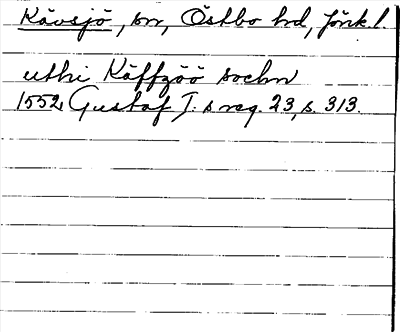 Kävsjö, sn, Östbo hd, Jönk.l.
uthi Käffzöö sochn
1552, Gustaf I:s reg. 23, s. 313.